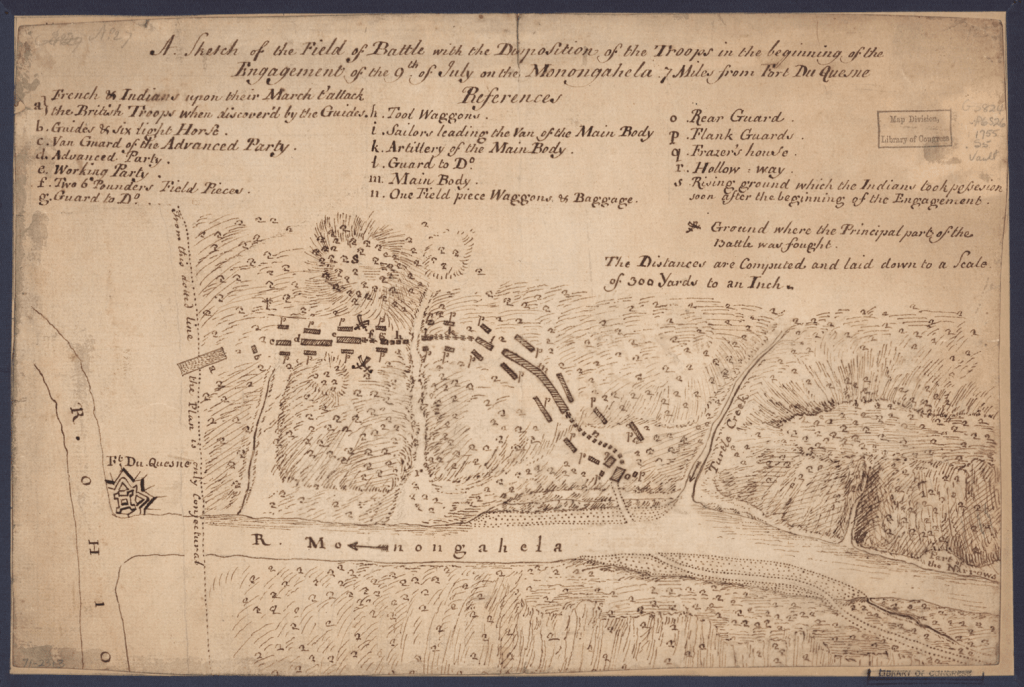 A Sketch of the Field of Battle with the Disposition of the Troops in the beginning of the
Engagement of the 9th of July on the Monongahela 7 Miles from Fort Du Quesne
References
a French & Indians upon their March t'attack
the British Troops when discover'd by the Guides.
b. Guides & six light Horse.
c. Van Guard of the Advanced Party.
d. Advanced Party.
e. Working Party.
f. Two 6 Pounders Field Pieces.
g. Guard to Do.
h. Tool Waggons.
i. Sailors leading the Van of the Main Body
k. Artillery of the Main Body.
l. Guard to Do.
m. Main Body.
n. One Field piece Waggons & Baggage.
o. Rear Guard.
p. Flank Guards.
q. Frazer's house.
r. Hollow-way.
s Rising ground which the Indians took possesion
soon after the beginning of the Engagement.
Ground where the Principal part of the
Battle was fought.
The Distances are Computed and laid down to a Scale
of 300 Yards to an Inch.
Map Division,
Library of Congress
1755
Vault
From this dotted line the Plan is only conjectural
R. OHIO
Ft. Du Quesne
R. Monongahela
Turtle Creek
part of
the Narrows
LIBRARY OF CONGRESS